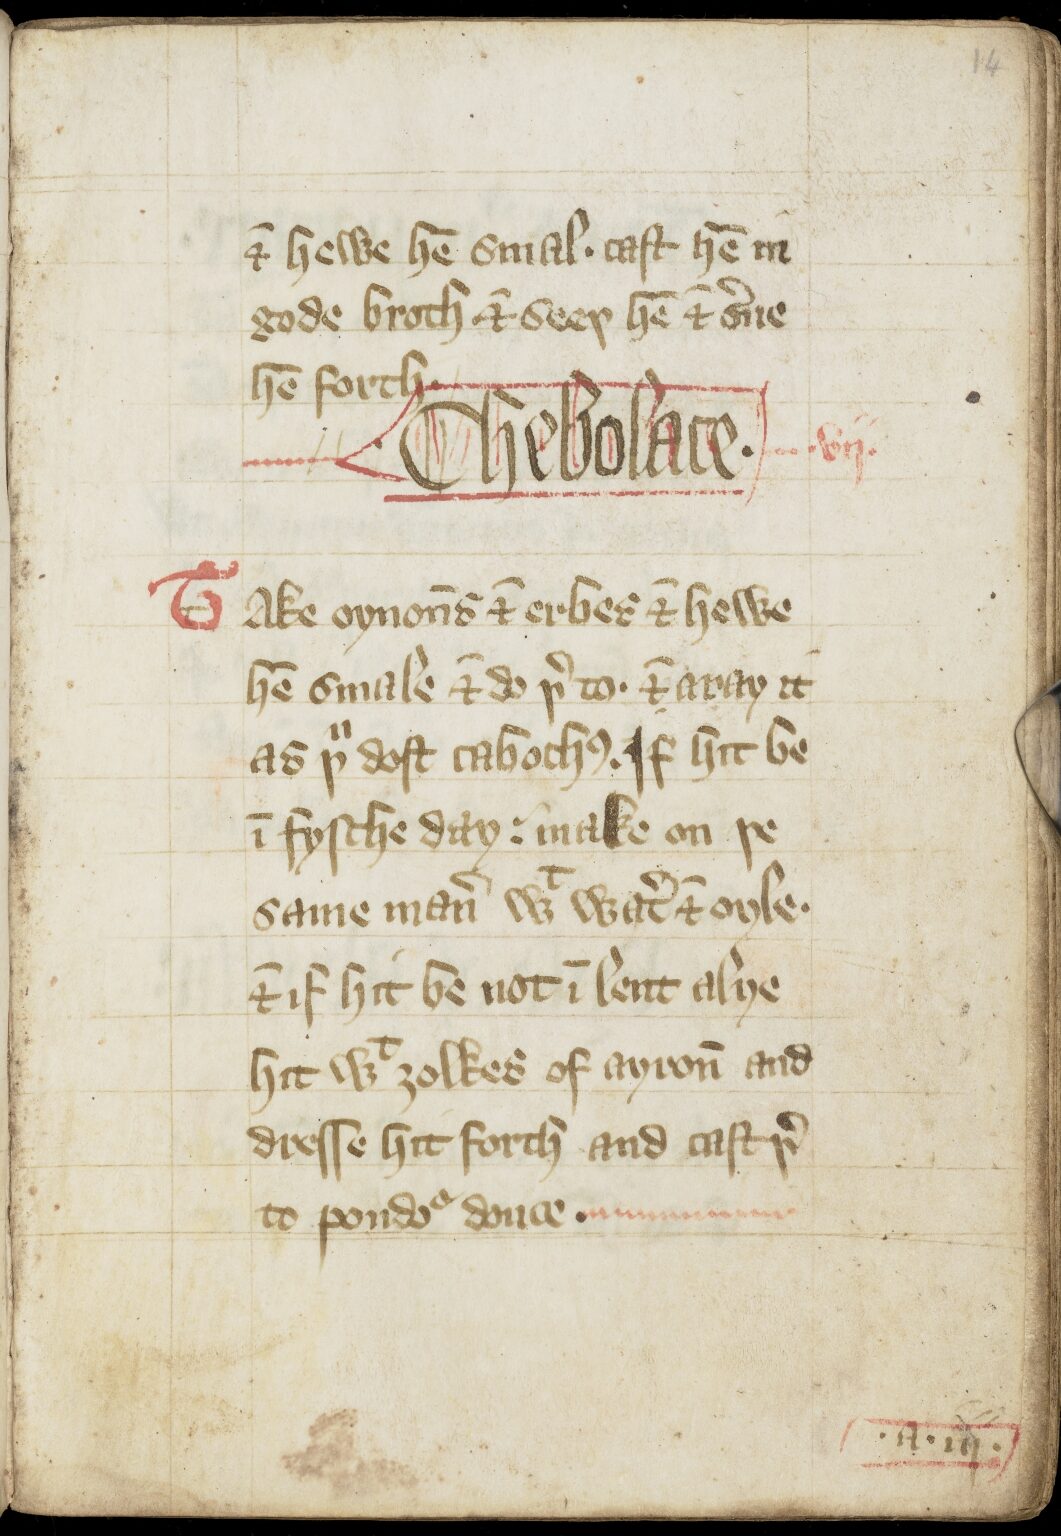 14
⁊̄ hewe hē smal· cast hē in
gode broth ⁊̄ seeþ hē ⁊̄ s̾ue
hē forth·
·Chebolace· ·vij·
TAke oynon̄s ⁊̄ erbes ⁊̄ hewe
hē smale ⁊̄ do þ̾ to· ⁊̄ aray it
as þᵘ dost caboch⁹. If hit be
ī fysche day: make on þe
same man̾ wᵗ wat̾ ⁊̄ oyle·
⁊̄ if hit be not ī lent alye
hit wᵗ ȝolkes of ayron̄ and
dresse hit forth and cast þ̾
to poudo͛ douce·
·a·iij·